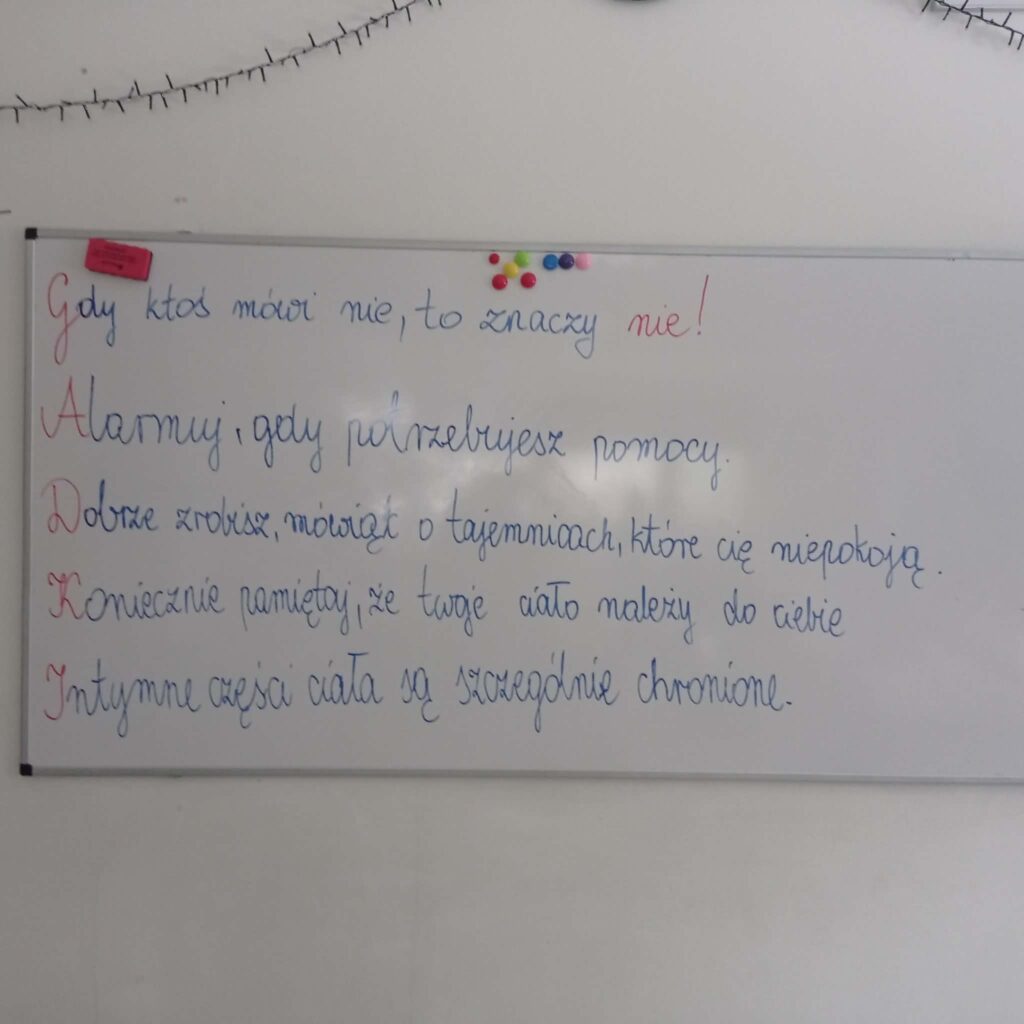 Gdy ktoś mówi nie, to znaczy nie!
Alarmuj, gdy potrzebujesz pomocy.
Dobrze zrobisz, mówiąc o tajemnicach, które cię niepokoją.
Koniecznie pamiętaj, że twoje ciało należy do ciebie
Intymne części ciała są szczególnie chronione.